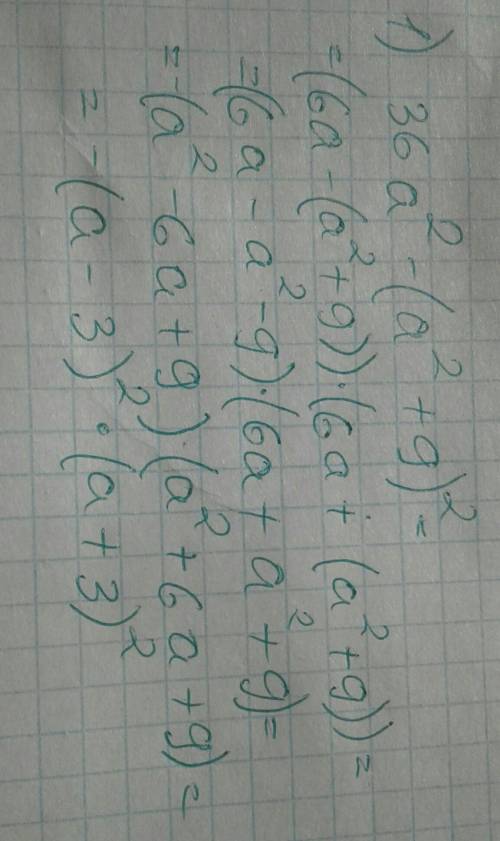 1) 36a² - (a² + 9)² =
= (6a - (a² + 9)) · (6a + (a² + 9)) =
= (6a - a² - 9) · (6a + a² + 9) =
= -(a² - 6a + 9) · (a² + 6a + 9) =
= -(a - 3)² · (a + 3)²